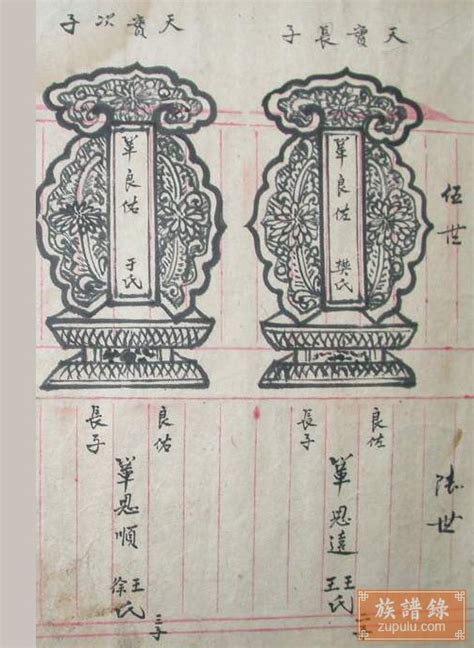 伍世
天寶長子
良佐 樊氏
天寶次子
良佑 于氏
陸世
良佐
長子
思遠 王王氏
良佑
長子
思順 王徐氏 三子
族譜錄
zupulu.com